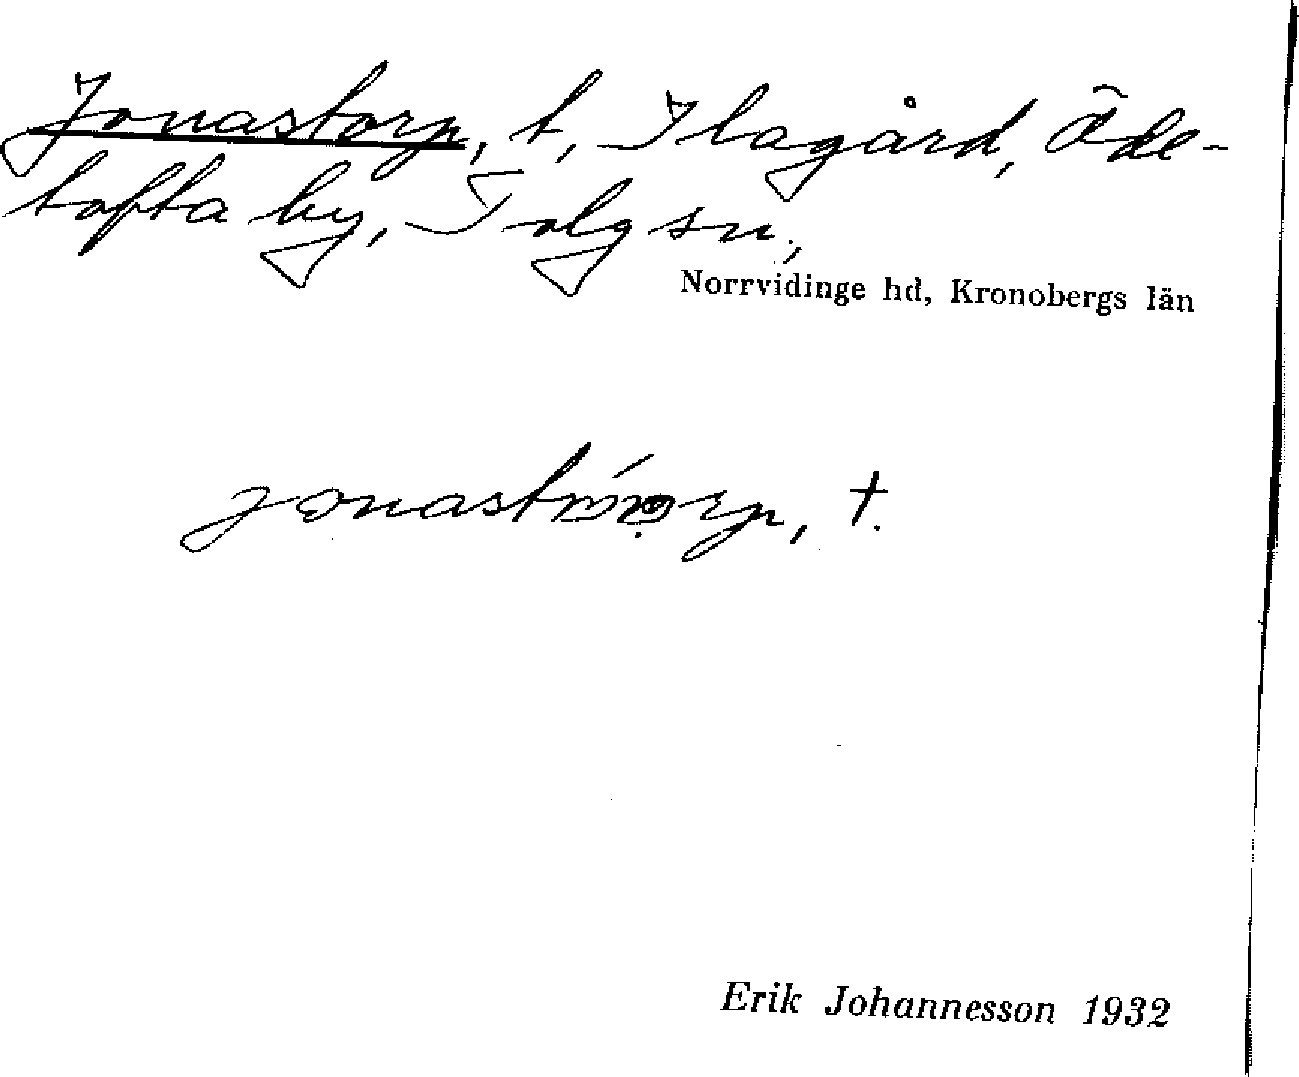 Jonastorp, t, Ilagård, Öde-
tofta by, Tolg sn,
Norrvidinge hd, Kronobergs län
t.
Erik Johannesson 1932